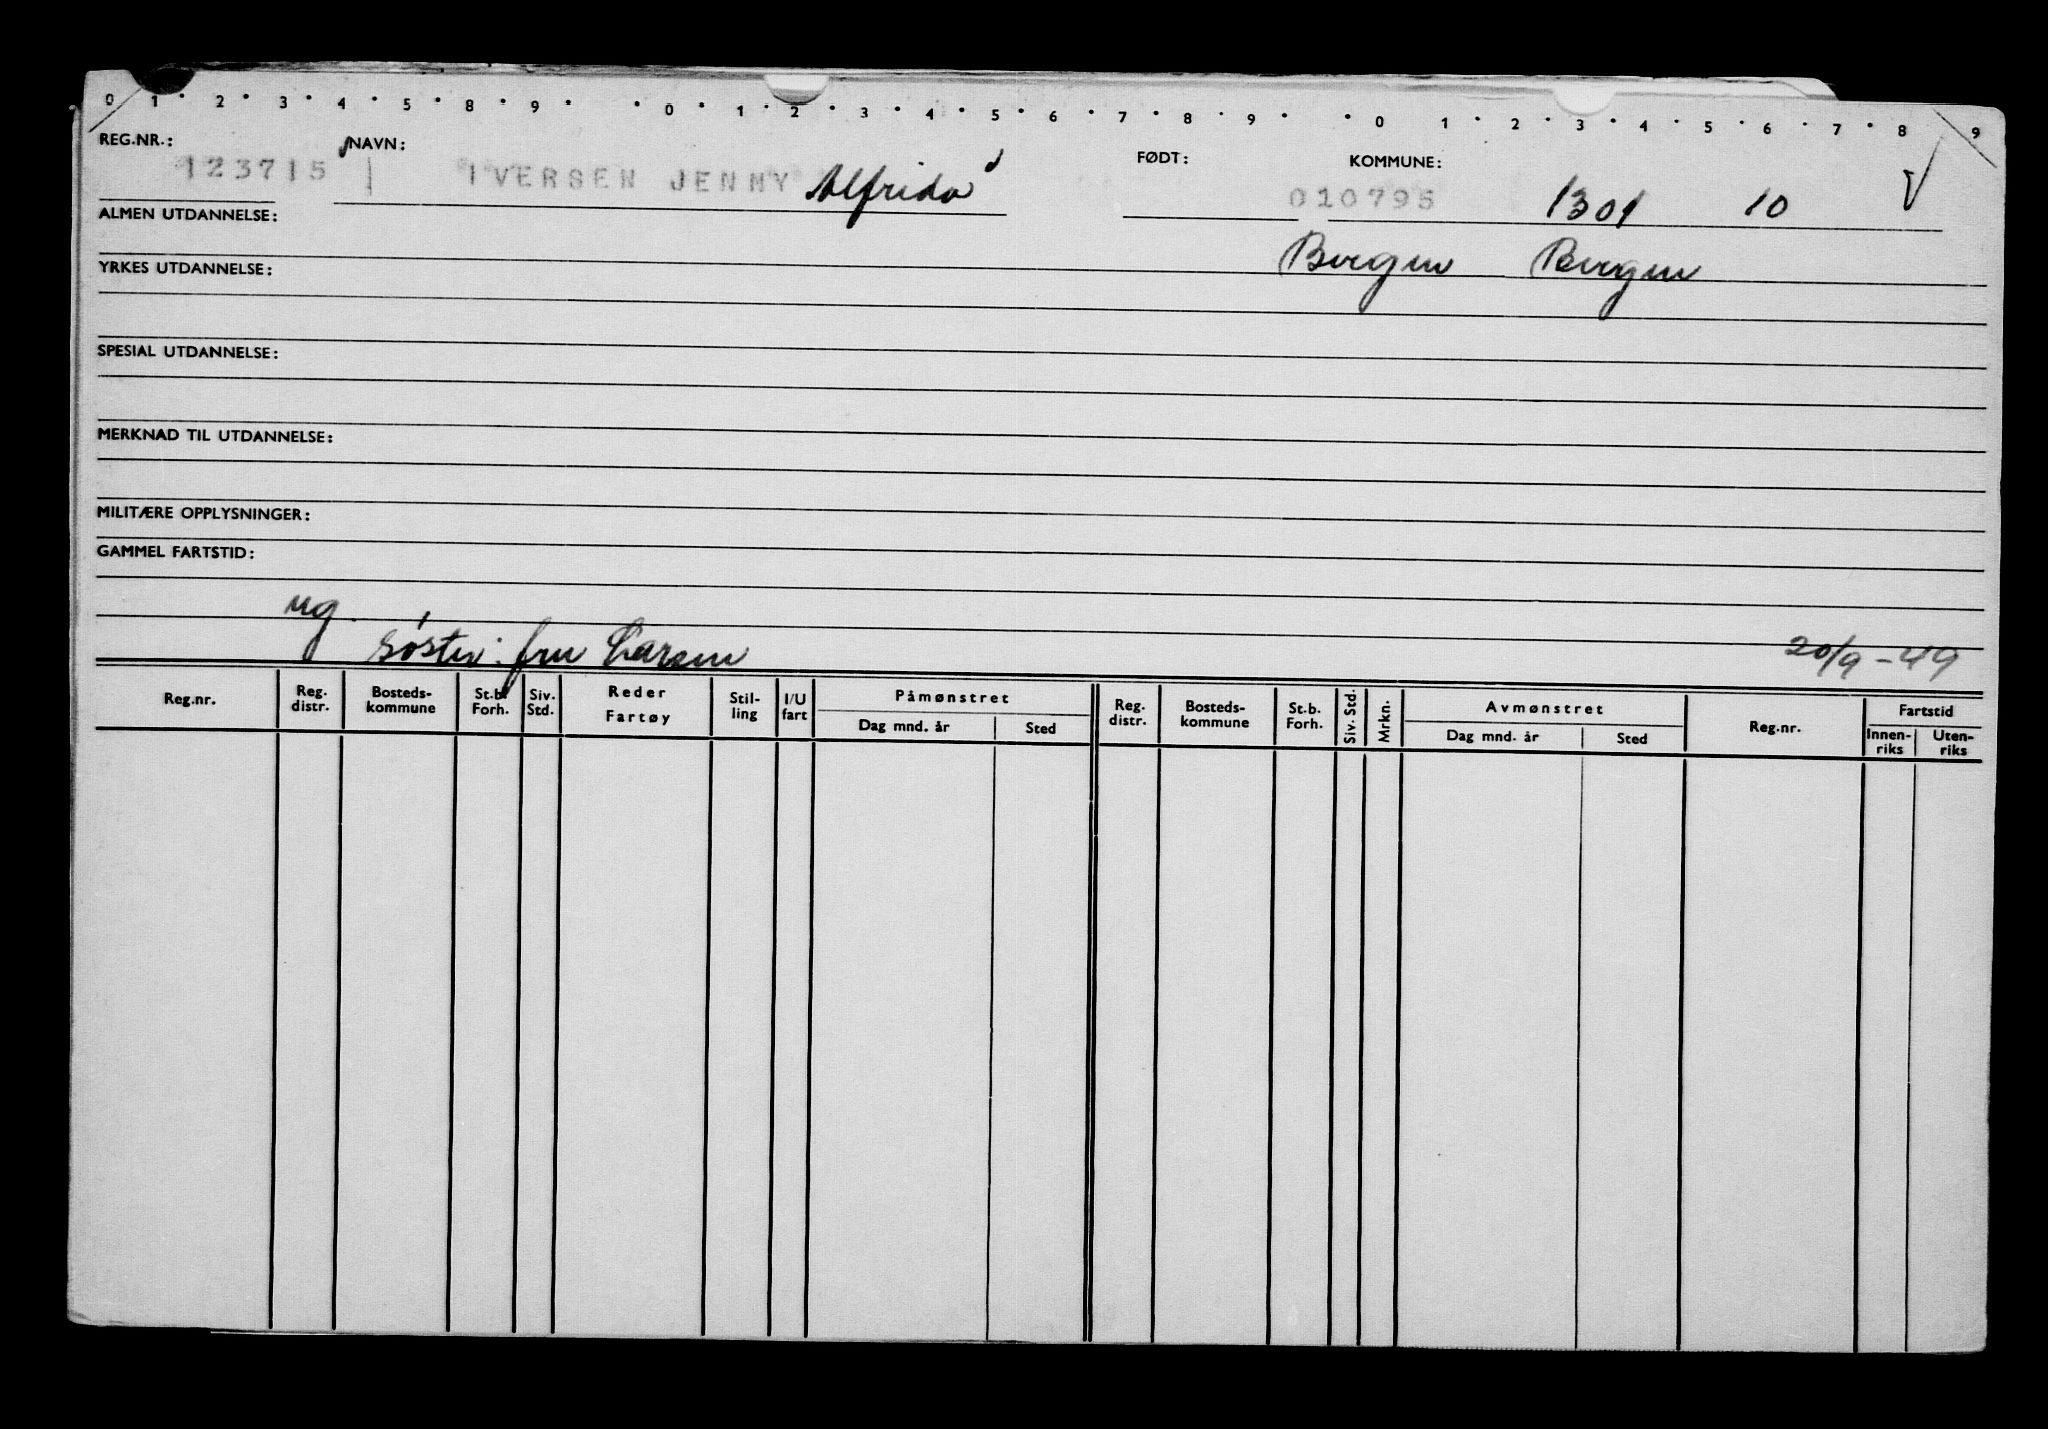 0 1 2 3 4 5 8 9 0 1 2 3 4 5 6 7 8 9 0 1 2 3 4 5 6 7 8 9
REG.NR.: NAVN: FØDT: KOMMUNE:
123715 IVERSEN JENNY Alfrida 010795 1301 10
ALMEN UTDANNELSE:
Bergen Bergen
YRKES UTDANNELSE:
SPESIAL UTDANNELSE:
MERKNAD TIL UTDANNELSE:
MILITÆRE OPPLYSNINGER:
GAMMEL FARTSTID:
ug.
søster: fru Larsen 20/9-49
Reg.nr. Reg. distr. Bosteds-kommune St.b. Forh. Siv. Std. Reder Fartøy Stil-ling I/U fart Påmønstret Reg. distr. Bosteds-kommune St.b. Forh. Siv. Std. Mrkn. Avmønstret Reg.nr. Fartstid
Dag mnd. år Sted Dag mnd. år Sted Innen-riks Uten-riks